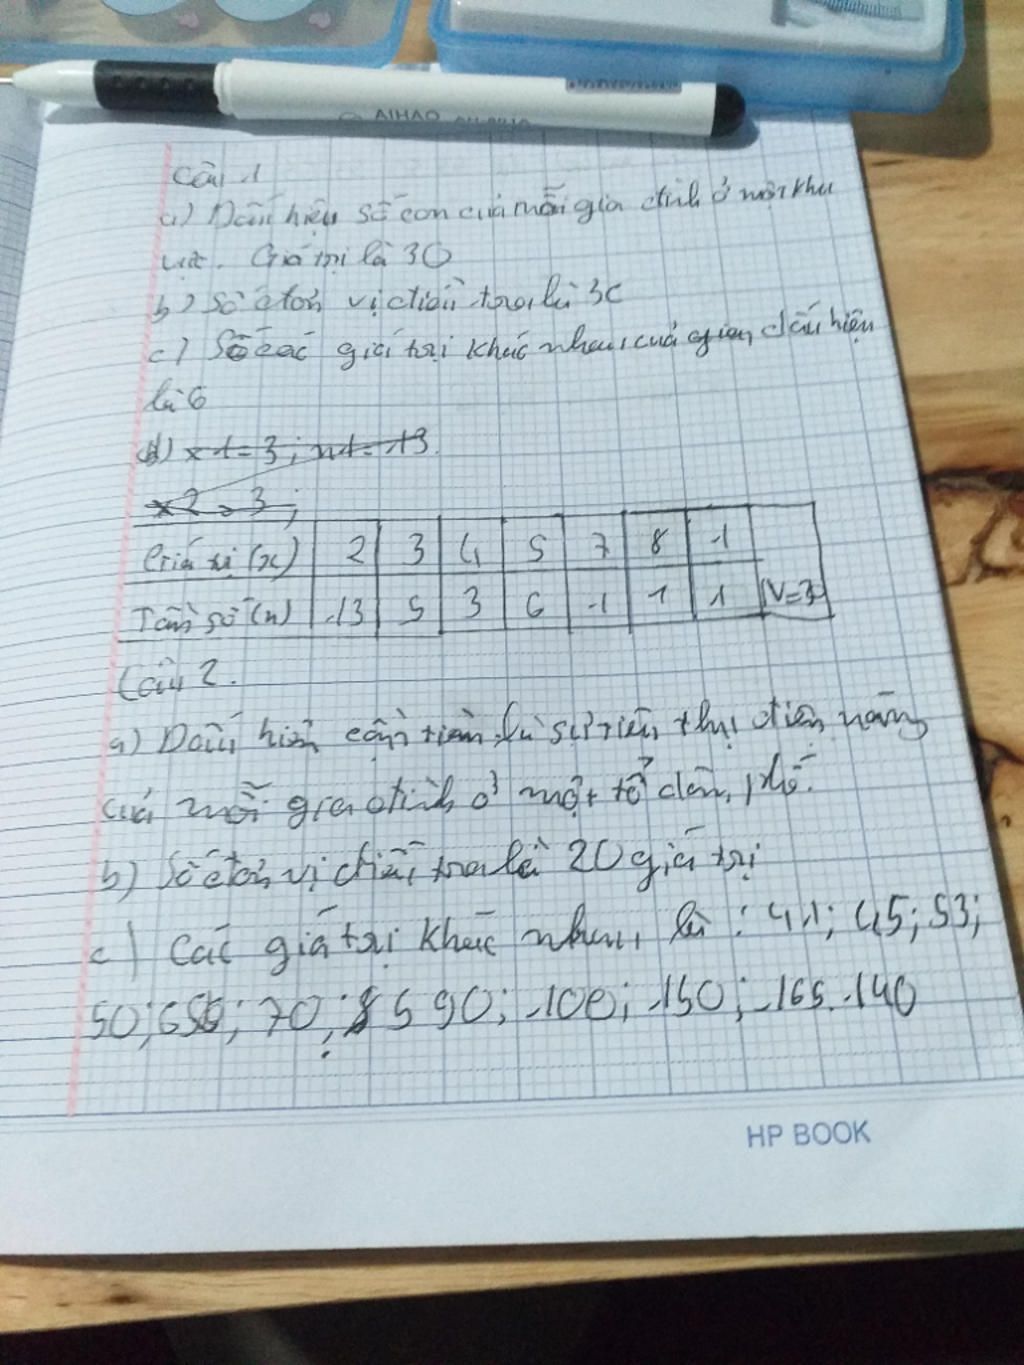 AIHAO
Câu 1
a) Dấu hiệu số con của mỗi gia đình ở một khu
vực. Giá trị là 30
b) Số đơn vị điều tra là 30
c) Số các giá trị khác nhau của dấu hiệu
là 6
d) x1=3; n1=13.
x2=3;
Giá trị (x) 2 3 4 5 7 8 1
Tần số (n) 13 5 3 6 1 1 1 N=3
Câu 2.
a) Dấu hiệu cần là sự tiêu thụ điện năng
của mỗi gia đình ở một tổ dân phố.
b) Số đơn vị điều tra là 20 giá trị
c) Các giá trị khác nhau là : 41; 45; 53;
50; 70; 85 90; 100; 150; 165. 140
HP BOOK